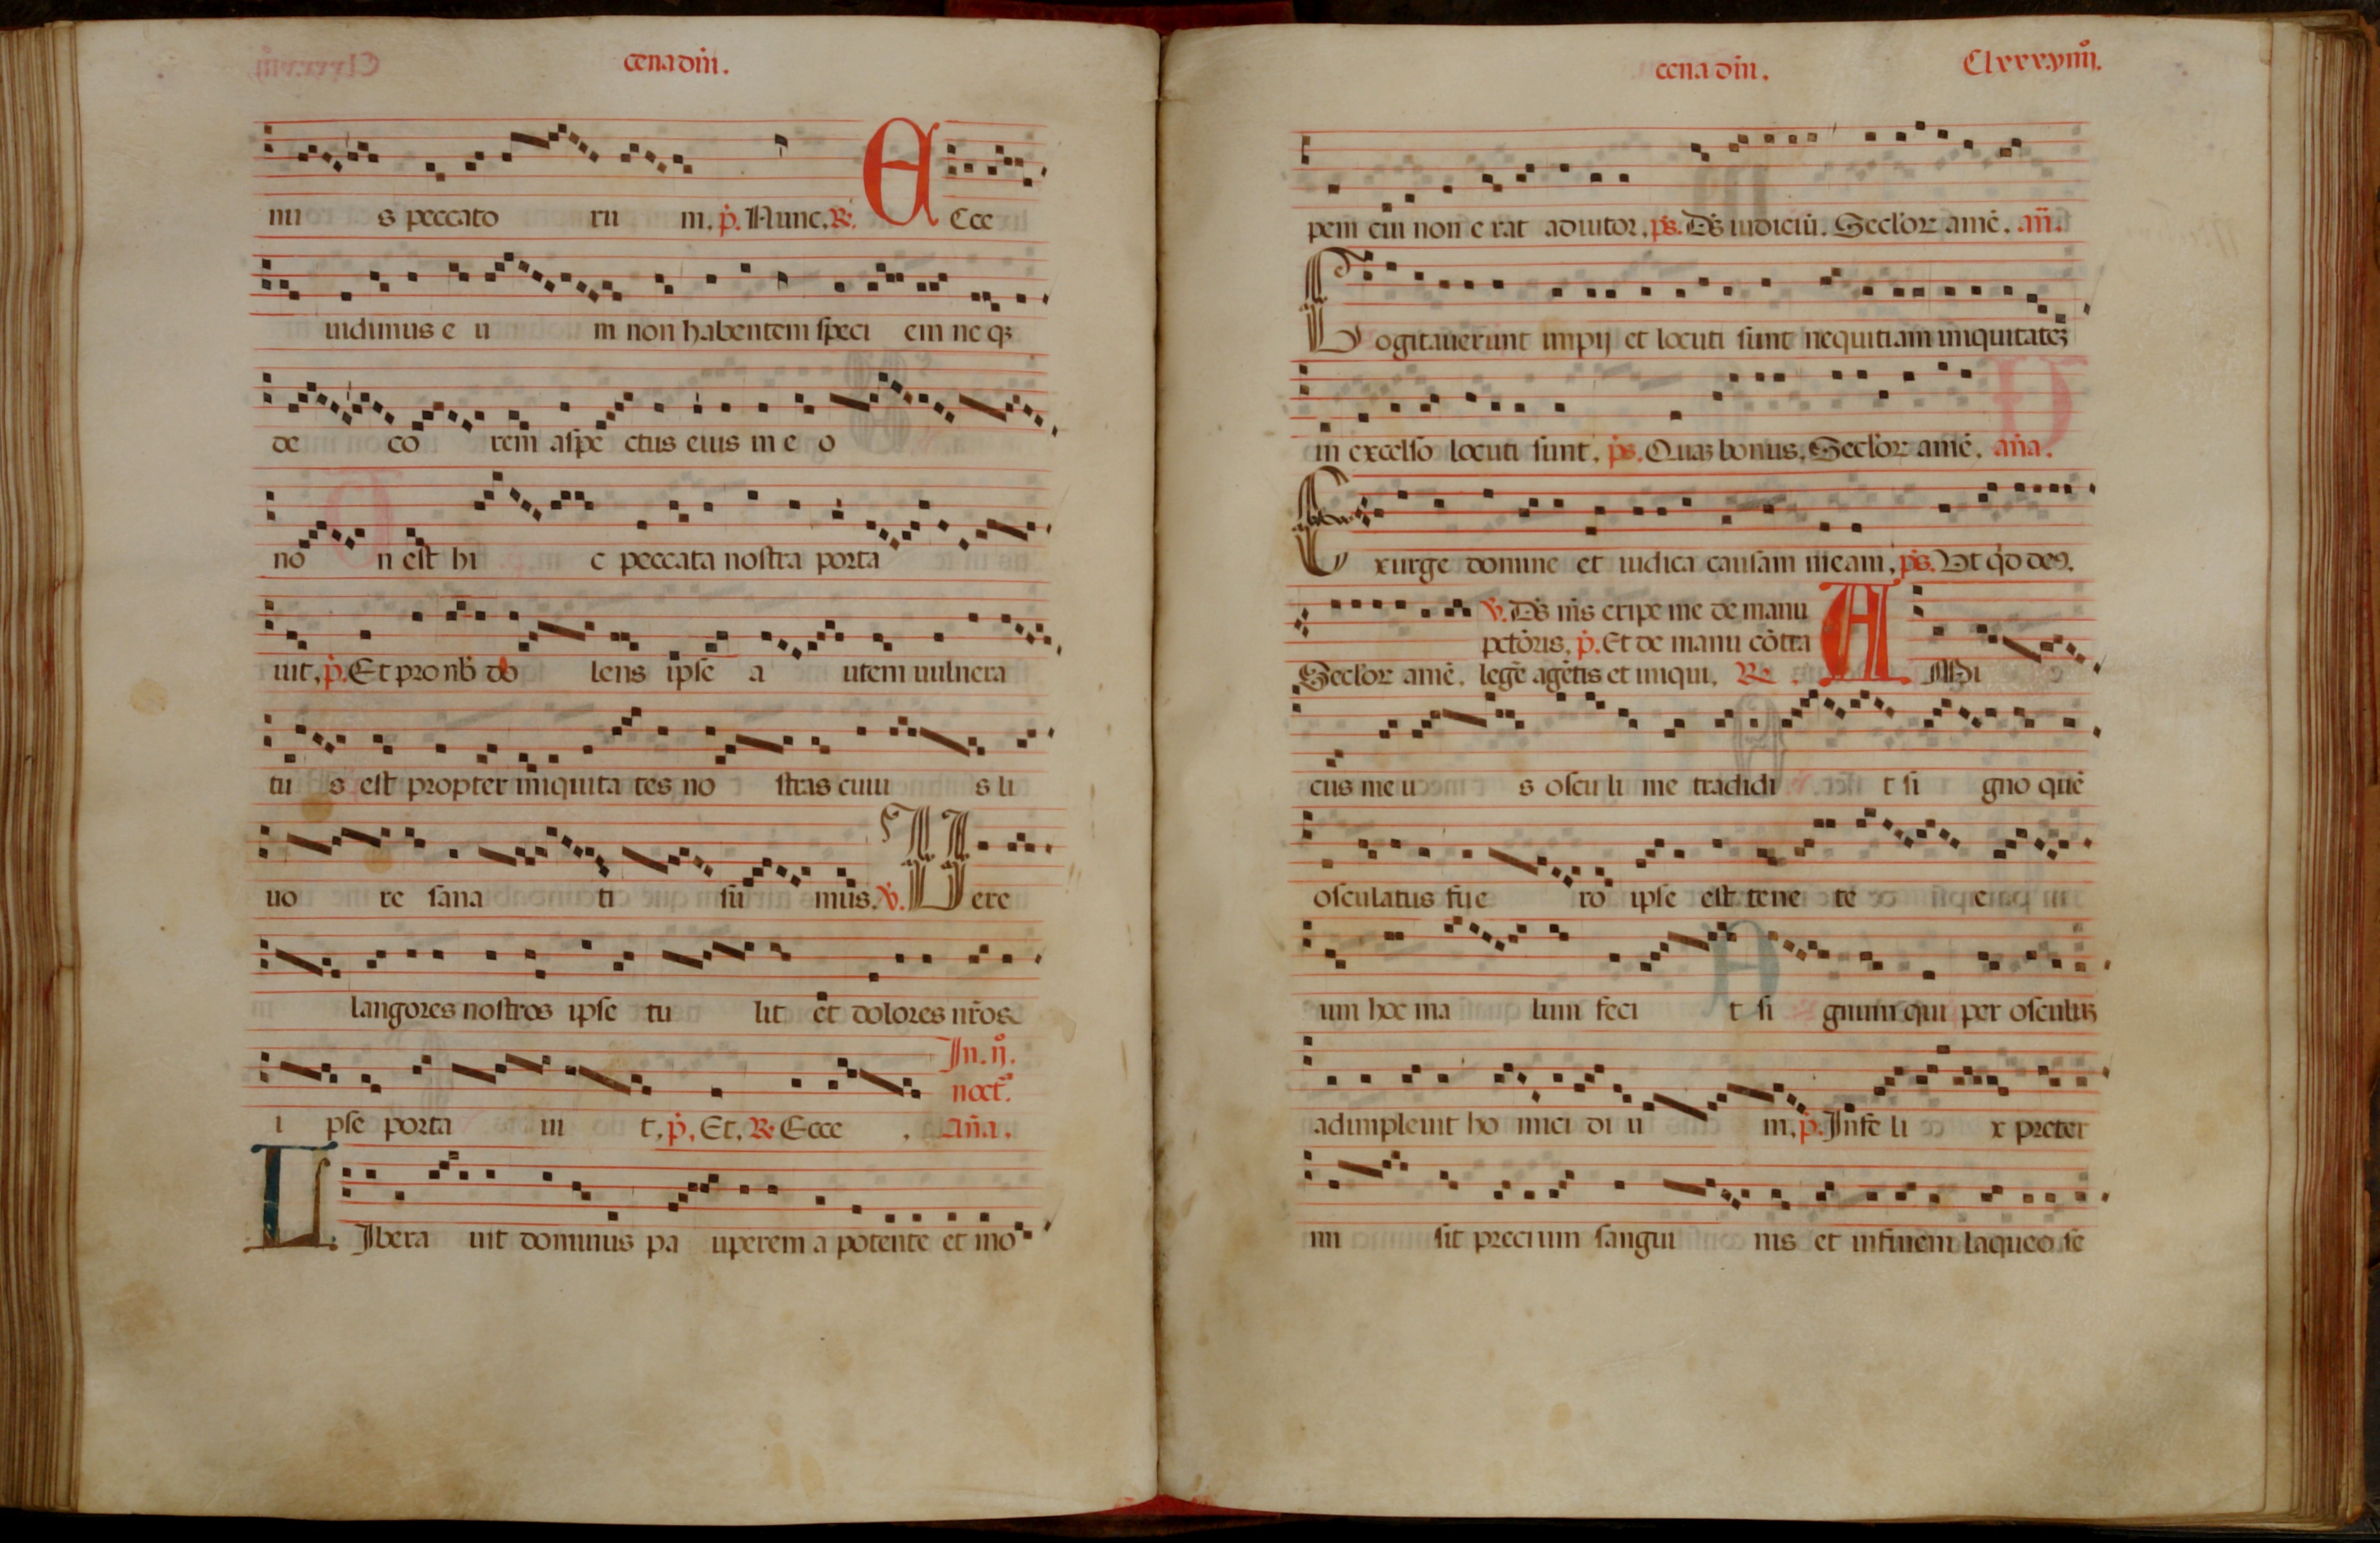 cena dn̄i.
mi s peccato ru m. p̄. Nunc. R̄. E Cce
uidimus e u m non habentem speci em ne qꝫ
de co rem aspe ctus eius in e o
no n est hi c peccata nostra porta
uit. p̄. Et pro nb̄ do lens ipse a utem uulnera
tu s est propter iniquita tes no stras cuiu s li
uo re sana ti su mus. v̄. Uere
langores nostros ipse tu lit et dolores nr̄os
In. ij.
noct.
i pse porta ui t. p̄. Et. R̄. Ecce . Añа.
L Ibera uit dominus pa uperem a potente et ino
cena dnī.
Clxxxviiij.
pem cui non e rat adiutor. ps. Ds̄ iudiciū. Secl'oꝝ amē. an̄.
Cogitauerunt impij et locuti sunt nequitiam iniquitateꝫ
in excelso locuti sunt. ps. Quaꝫ bonus. Secl'oꝝ amē. an̄a.
Exurge domine et iudica causam meam. ps. Ut qd deꝰ.
v̄. Ds̄ ms̄ eripe me de manu
petōris. p̄. Et de manu cōtra
Secl'oꝝ amē. legē agētis et iniqui. R̄. A Mi
cus me u s oscu li me tradidi t si gno quē
osculatus fue ro ipse est tene te e
um hoc ma lum feci t si gnum qui per osculuꝫ
adimpleuit ho mici di u m. p̄. Infe li x preter
mi sit precium sangui nis et in finem laqueo se